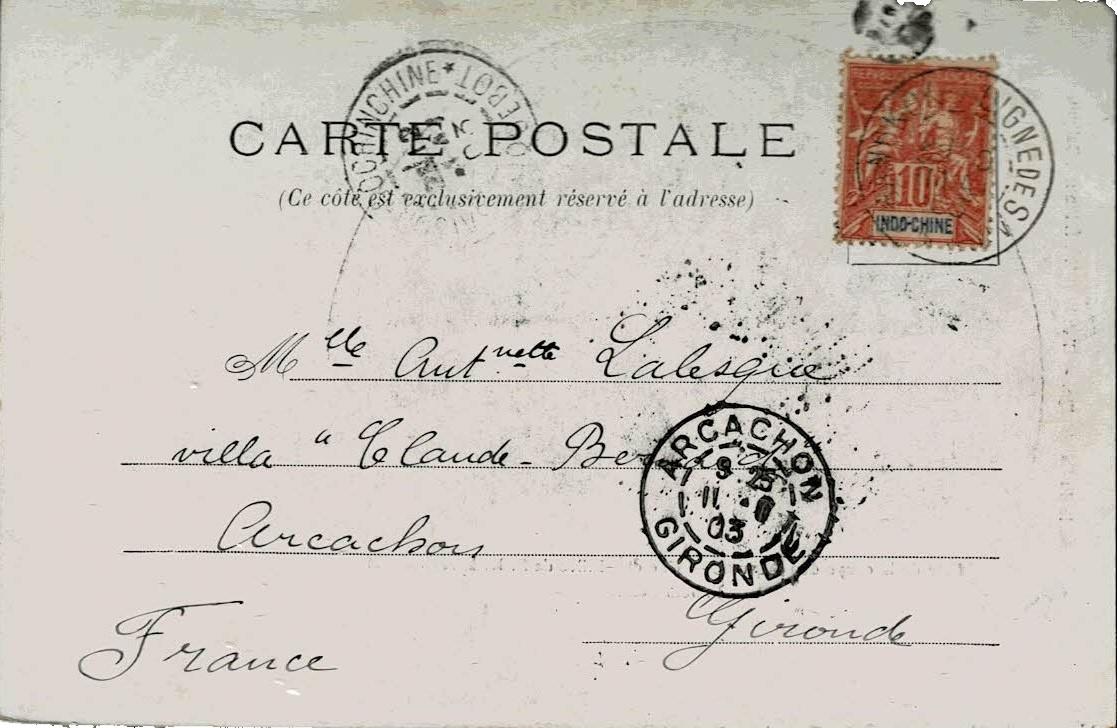 COCHINCHINE * 
CARTE POSTALE
(Ce côté est exclusivement réservé à l'adresse)
REPUBLIQUE FRANÇAISE
10
INDO-CHINE
LIGNE DE
Mlle Antnette Lalesque
villa "Claude-Bernard"
Arcachon
Gironde
France
ARCACHON
9 25
11
03
GIRONDE